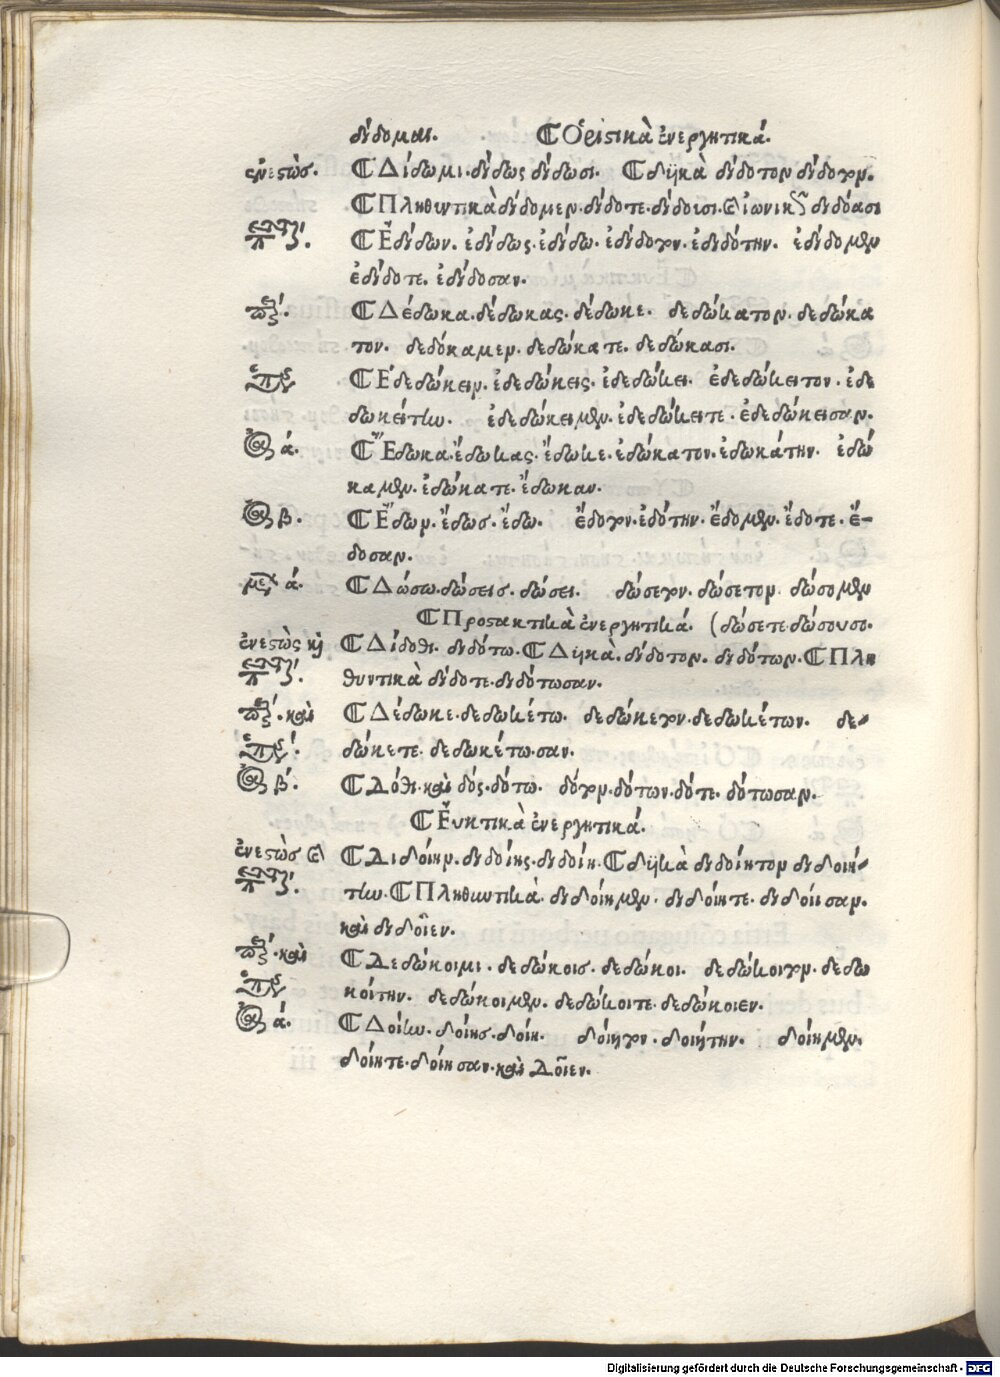 δίδομαι. Ὁριστικὰ ἐνεργητικά.
ἐνεστώς. Δίδωμι. δίδως δίδωσι. δυϊκὰ δίδοτον δίδοτον.
Πληθυντικὰ δίδομεν. δίδοτε. δίδοισι. ἰωνικῶς διδόασι
Ἐδίδων. ἐδίδως. ἐδίδω. ἐδίδοτον. ἐδιδότην. ἐδίδομεν
ἐδίδοτε. ἐδίδοσαν.
Δέδωκα. δέδωκας. δέδωκε. δεδώκατον. δεδώκα
τον. δεδόκαμεν. δεδώκατε. δεδώκασι.
Ἐδεδώκειν. ἐδεδώκεις. ἐδεδώκει. ἐδεδώκειτον. ἐδε
δωκείτην. ἐδεδώκειμεν. ἐδεδώκειτε. ἐδεδώκεισαν.
ά. Ἔδωκα. ἔδωκας. ἔδωκε. ἐδώκατον. ἐδωκάτην. ἐδώ
καμεν. ἐδώκατε. ἔδωκαν.
β. Ἔδων. ἔδωσ. ἔδω. ἔδοτον. ἐδότην. ἔδομεν. ἔδοτε. ἔ-
δοσαν.
ά. Δώσω. δώσεισ. δώσει. δώσετον. δώσετον. δώσομεν
Προστακτικὰ ἐνεργητικά. (δώσετε δώσουσι.
ἐνεστὼς καὶ Δίδοθι. διδότω. Δυϊκὰ. δίδοτον. διδότων. Πλη
θυντικὰ δίδοτε. διδότωσαν.
καὶ Δέδωκε. δεδωκέτω. δεδώκετον. δεδωκέτων. δε-
δώκετε. δεδωκέτωσαν.
β. Δόθι. καὶ δός. δότω. δότον. δότων. δότε. δότωσαν.
Εὐκτικὰ ἐνεργητικά.
ἐνεστὼσ Διδοίην. διδοίης. διδοίη. δυϊκὰ διδοίητον διδοιή-
την. Πληθυντικὰ. διδοίημεν. διδοίητε. διδοίησαν.
καὶ διδοῖεν.
καὶ Δεδώκοιμι. δεδώκοισ. δεδώκοι. δεδώκοιτον. δεδω
κοίτην. δεδώκοιμεν. δεδώκοιτε. δεδώκοιεν.
ά. Δοίην. δοίησ. δοίη. δοίητον. δοιήτην. δοίημεν.
δοίητε. δοίησαν. καὶ Δοῖεν.
Digitalisierung gefördert durch die Deutsche Forschungsgemeinschaft - DFG